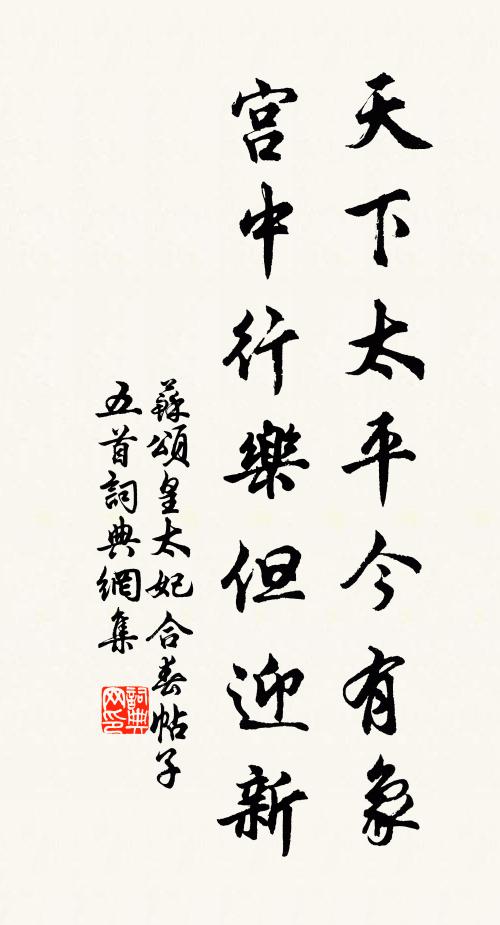 天下太平今有象
宫中行樂但迎新
蘇頌皇太妃合春帖子
五首詞典網集
詞典网印